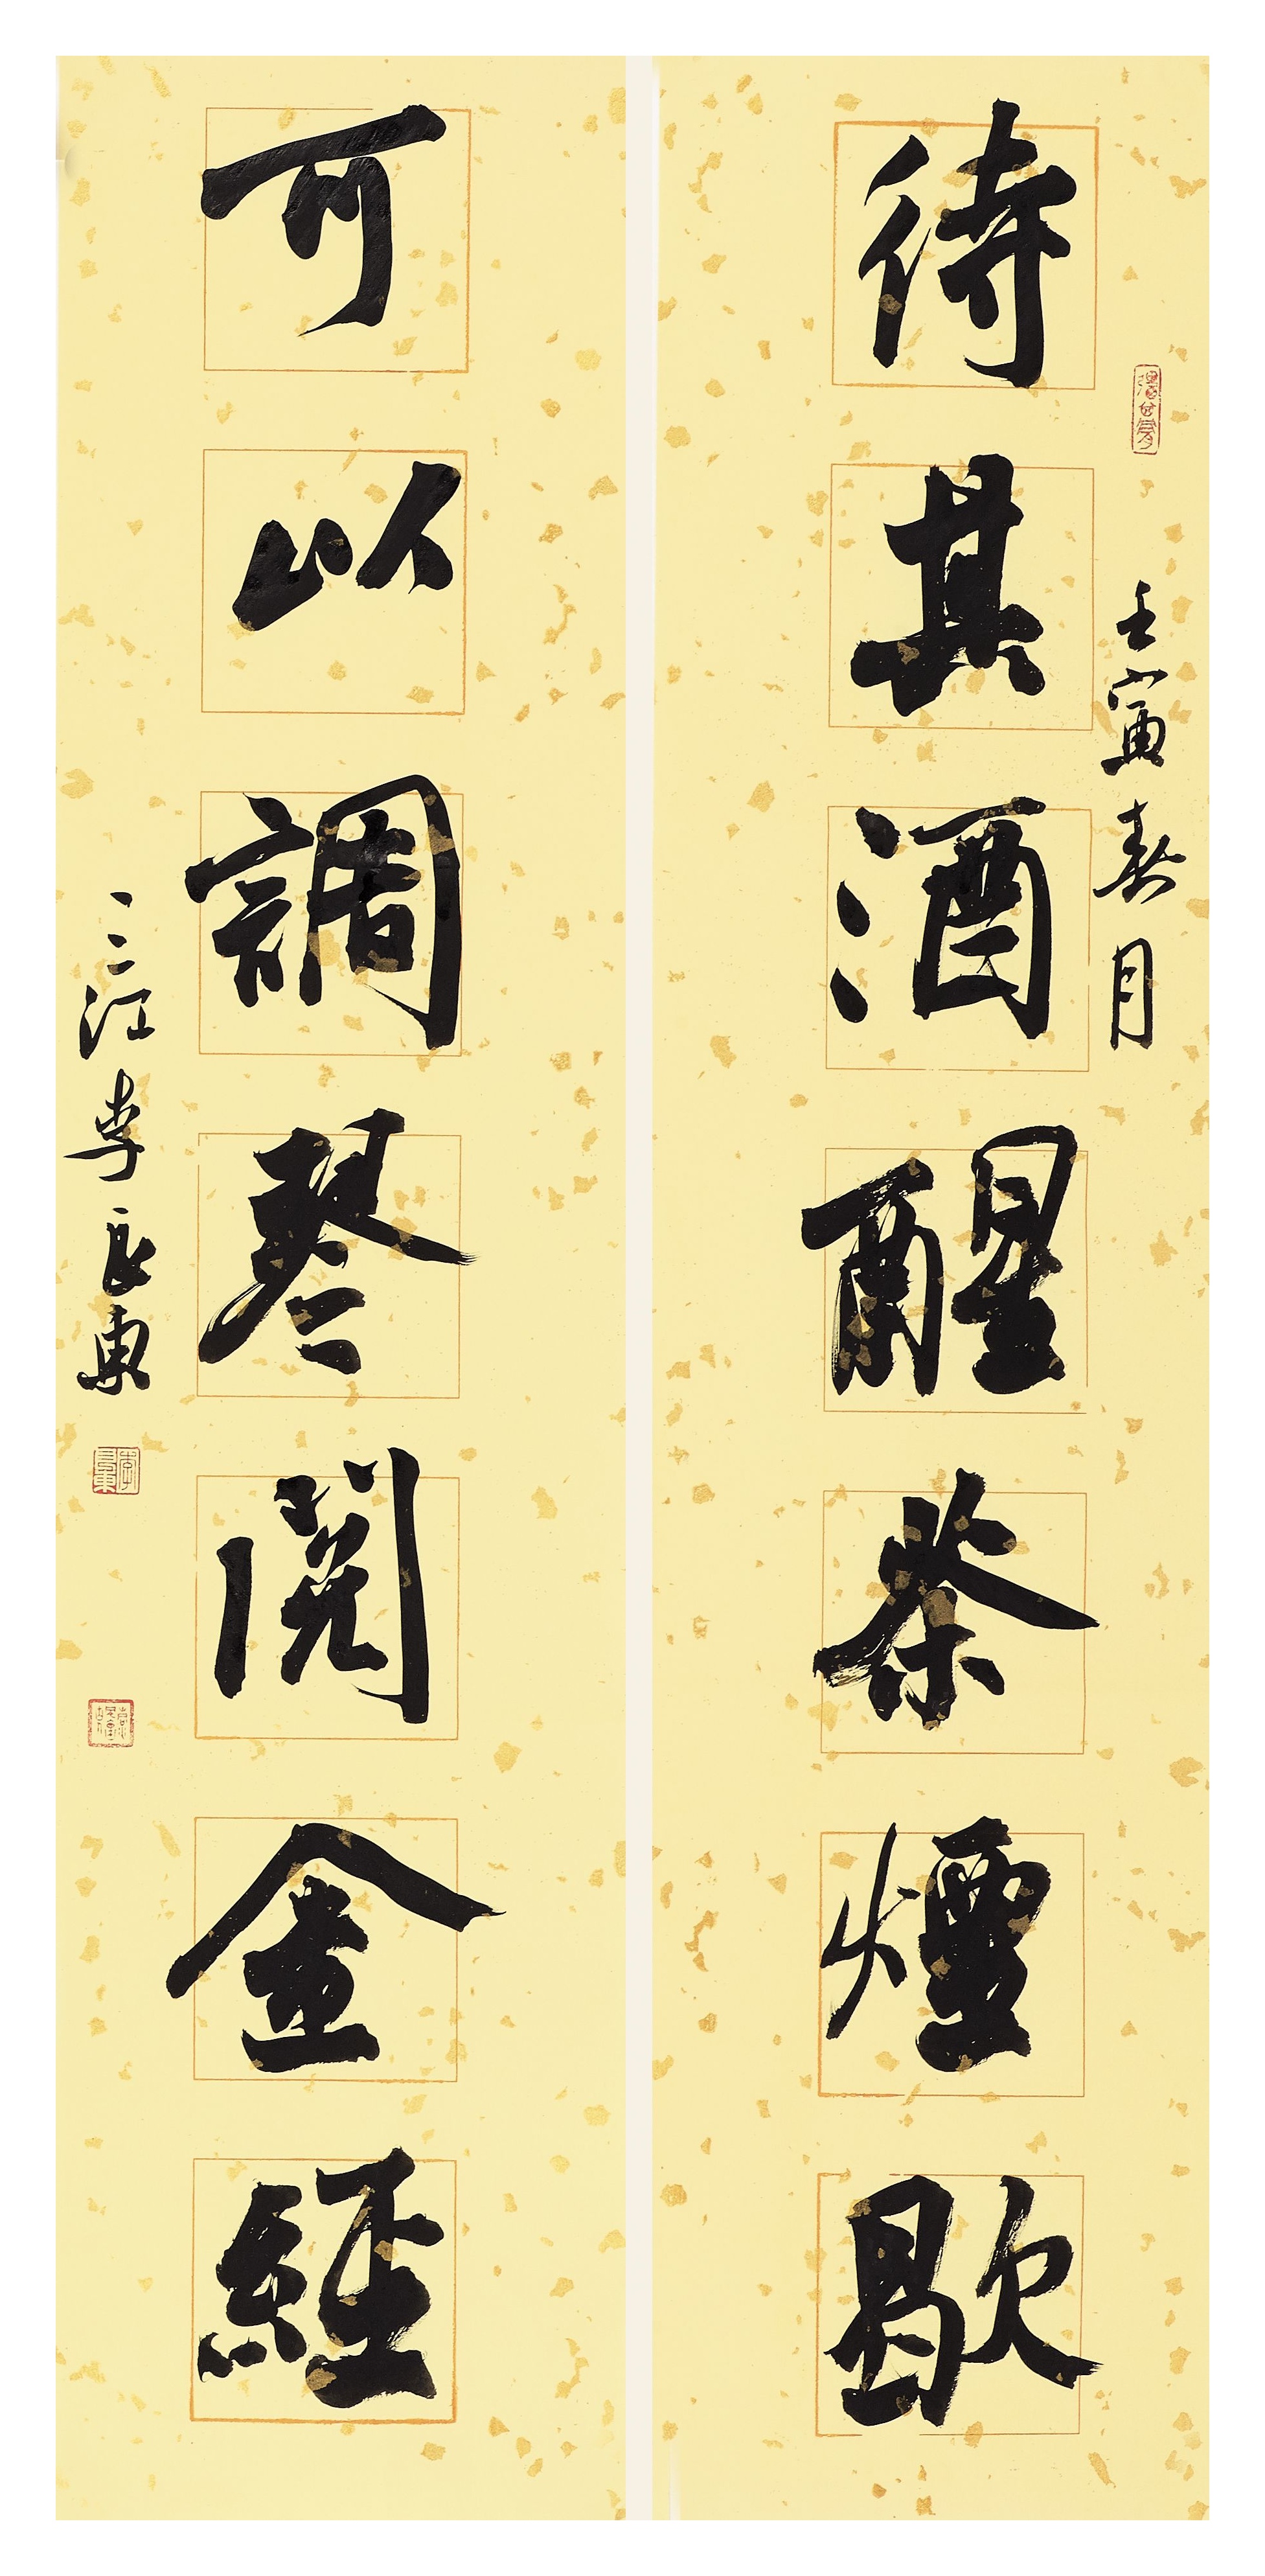 壬寅春月
待其酒醒茶煙歇
可以調琴閱金經
三江李正東